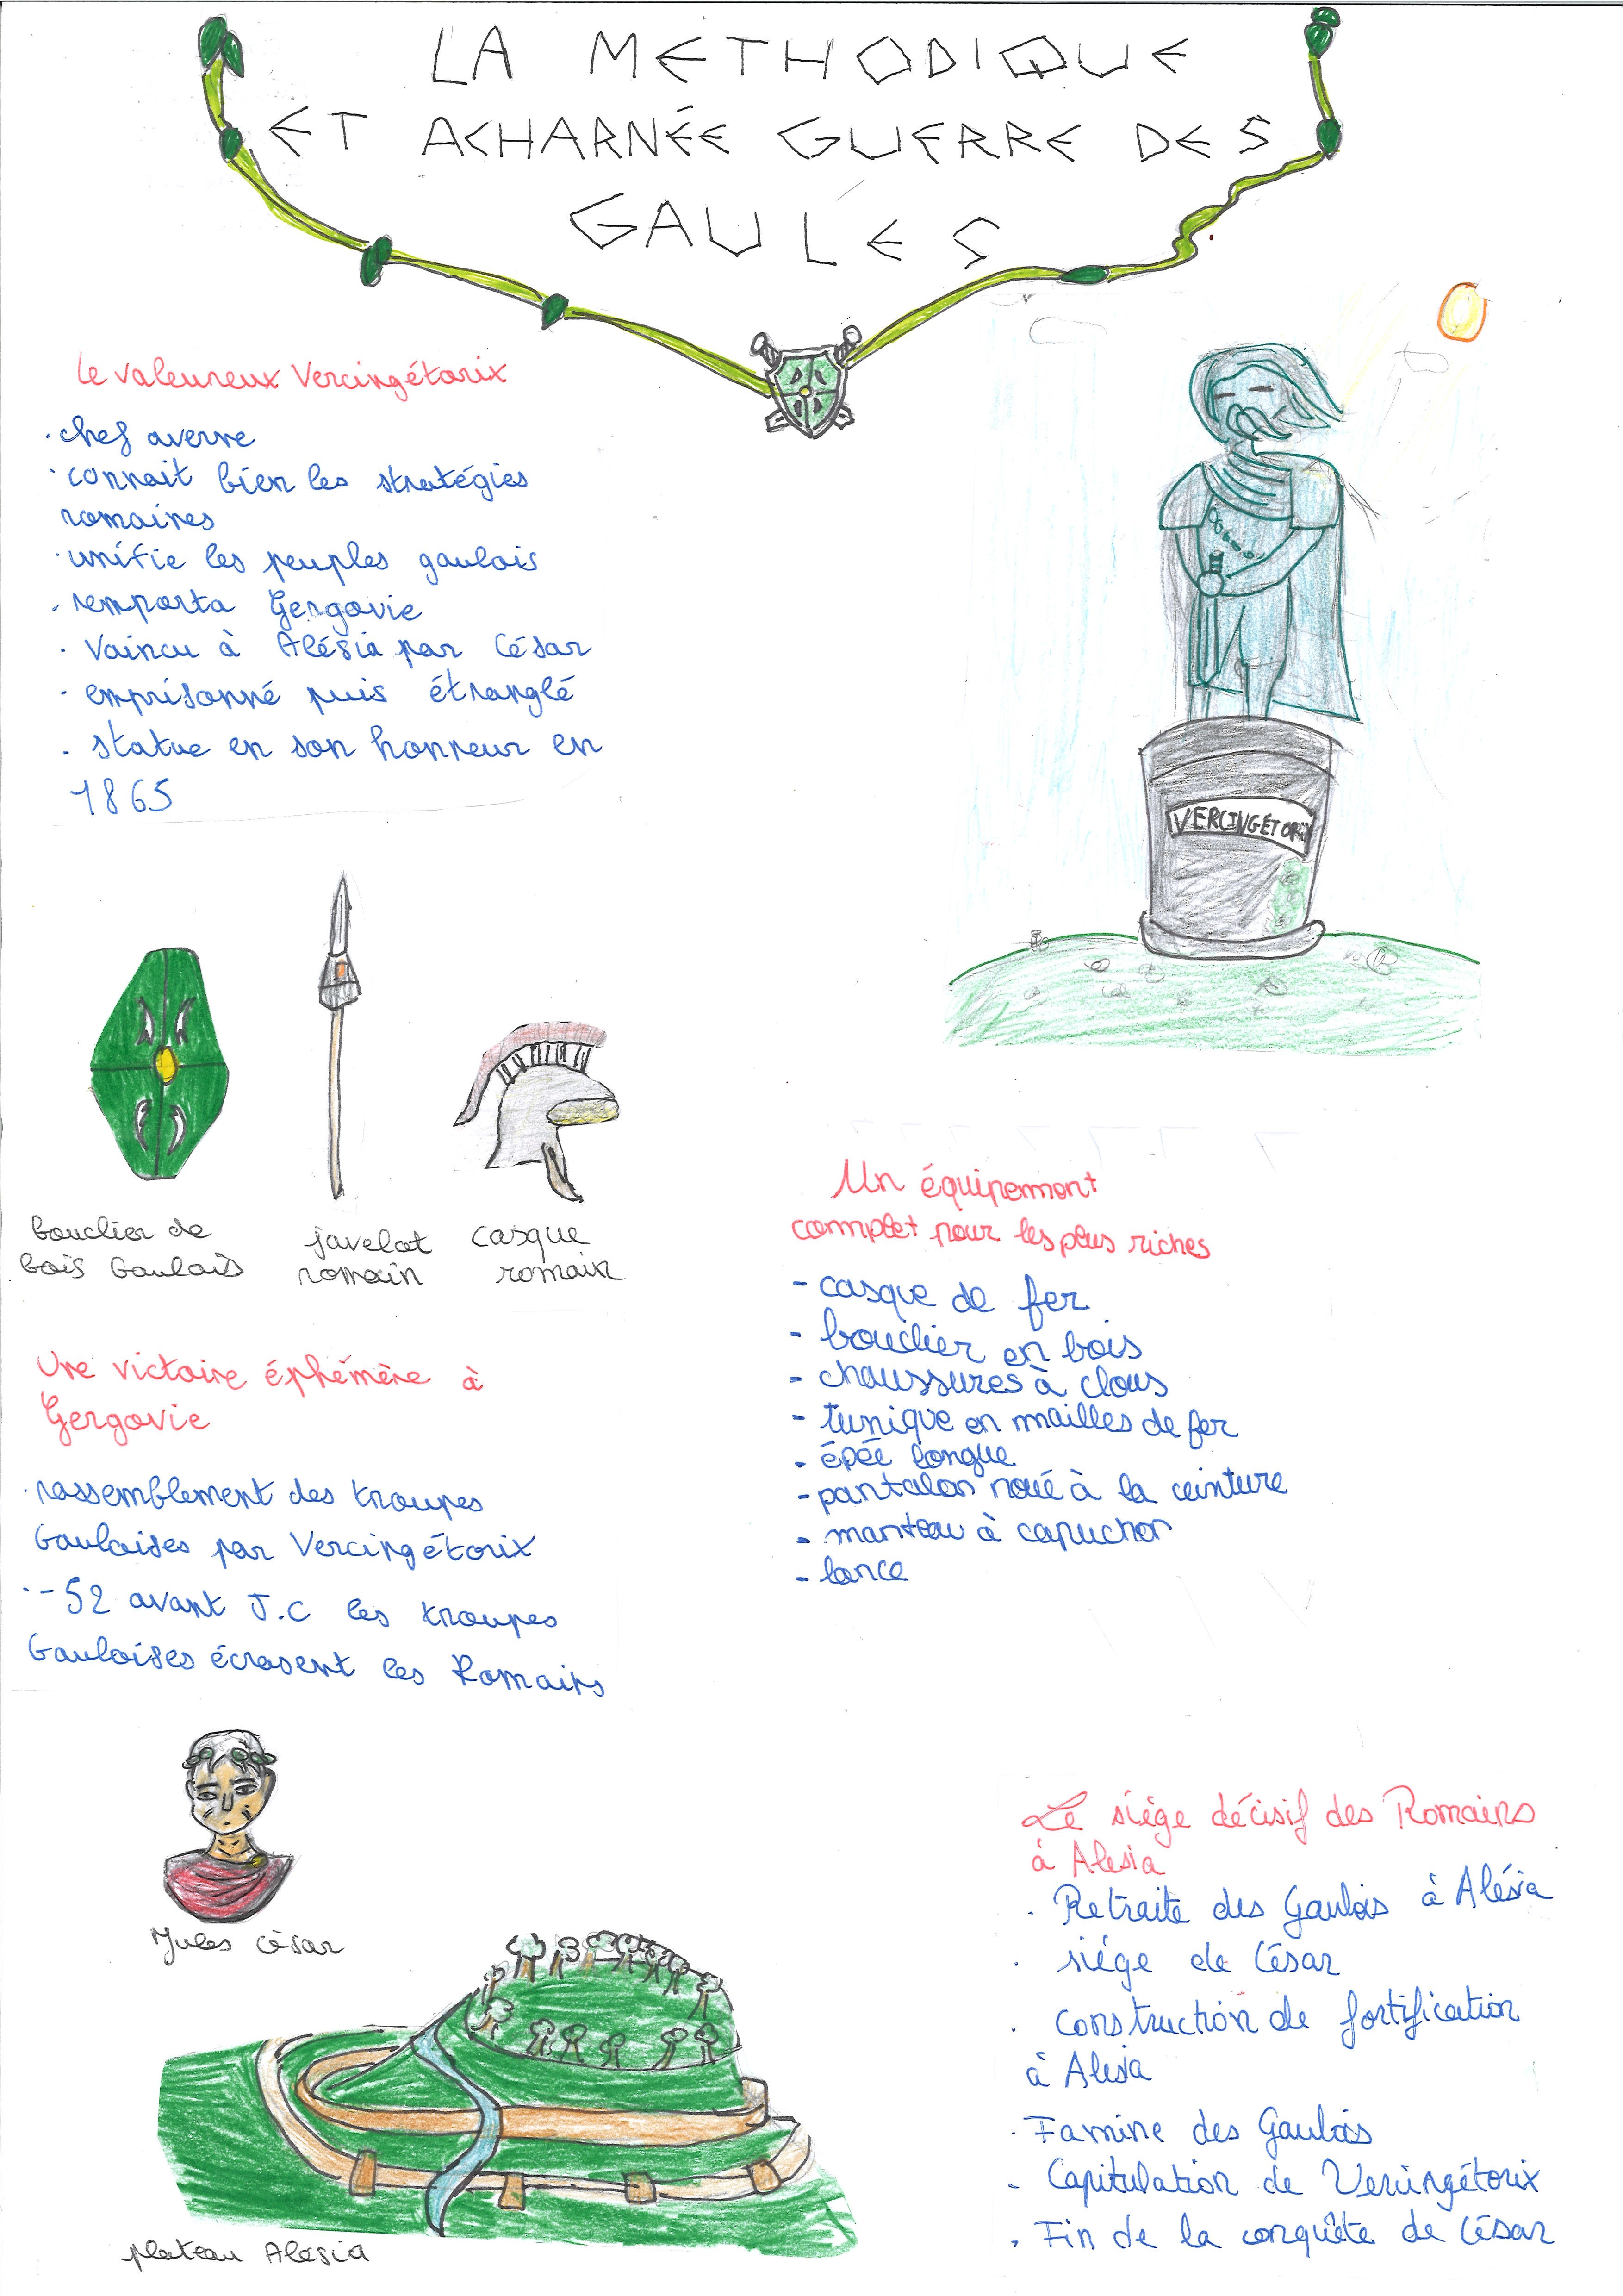 LA METHODIQUE
ET ACHARNÉE GUERRE DES
GAULES
Le valeureux Vercingétorix
. chef averne
. connait bien les stratégies
romaines
. unifie les peuples gaulois
. remporta Gergovie
. Vaincu à Alésia par César
. emprisonné puis étranglé
. statue en son honneur en
1865
VERCINGÉTORIX
bouclier de
bois Gaulois
javelot
romain
casque
romain
Un équipement
complet pour les plus riches
- casque de fer
- bouclier en bois
- chaussures à clous
- tunique en mailles de fer
- épée longue
- pantalon noué à la ceinture
- manteau à capuchon
- lance
Une victoire éphémère à
Gergovie
. rassemblement des troupes
Gauloises par Vercingétorix
. -52 avant J.C les troupes
Gauloises écrasent les Romains
Jules César
plateau Alésia
Le siège décisif des Romains
à Alesia
. Retraite des Gaulois à Alésia
. siége de César
. Construction de fortification
à Alesia
. Famine des Gaulois
. Capitulation de Vercingétorix
. Fin de la conquête de César